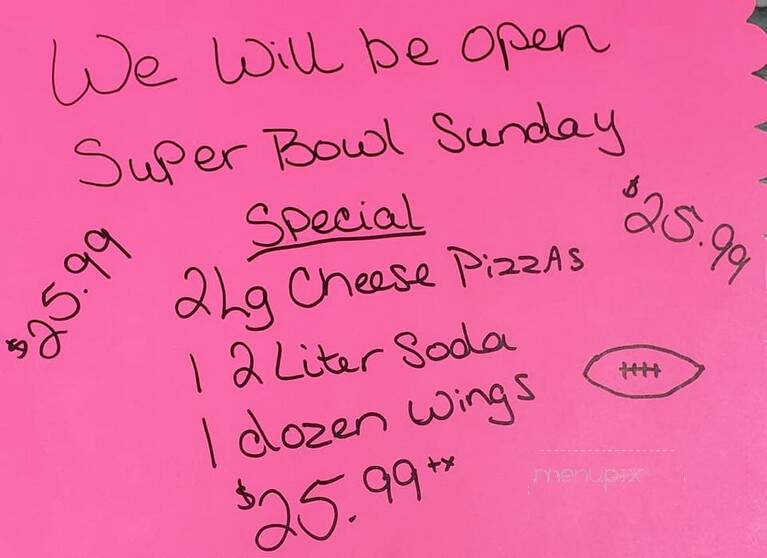 We Will be open
Super Bowl Sunday
Special
$25.99
$25.99
2 Lg Cheese PizzAs
1 2 Liter Soda
1 dozen Wings
$25.99 +x
menupix